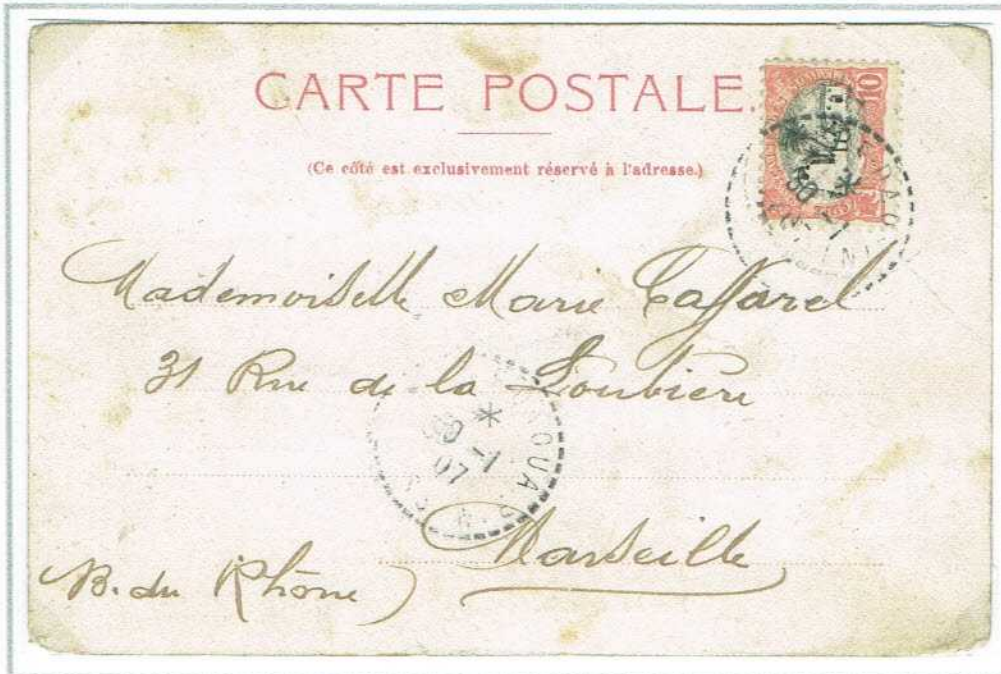 CARTE POSTALE.
(Ce côté est exclusivement réservé à l'adresse.)
10
Mademoiselle Marie Caffarel
31 Rue de la Loubière
30
11
07
Marseille
B. du Rhône)